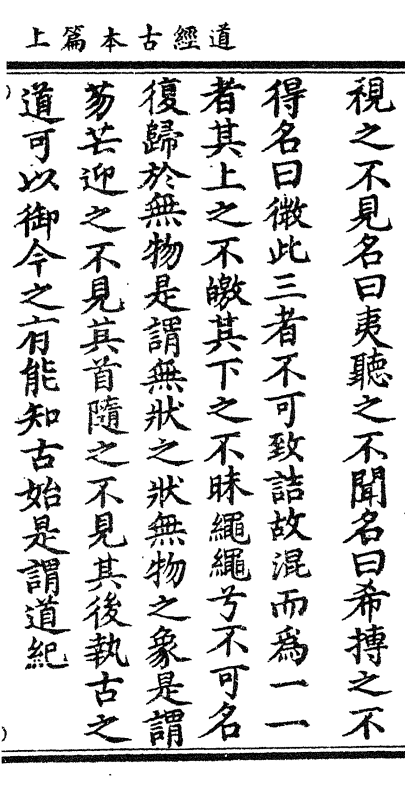 道經古本篇上
視之不見名曰夷聽之不聞名曰希搏之不
得名曰微此三者不可致詰故混而爲一一
者其上之不皦其下之不昧繩繩兮不可名
復歸於無物是謂無狀之狀無物之象是謂
芴芒迎之不見其首隨之不見其後執古之
道可以御今之有能知古始是謂道紀